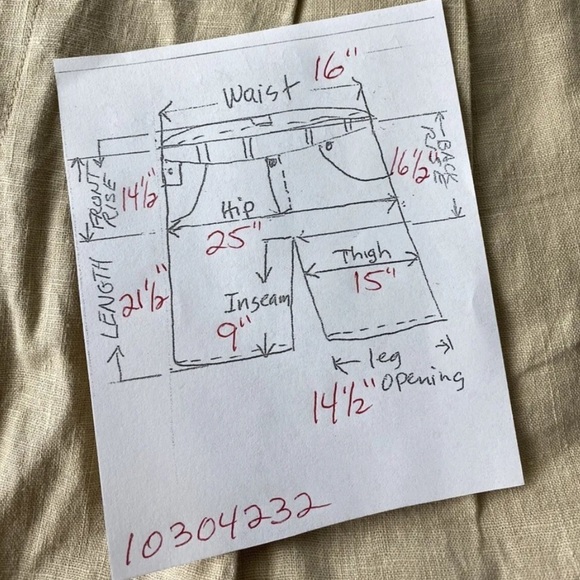 Waist 16"
FRONT RISE
14½"
BACK RISE
16½"
Hip
25"
Thigh
15"
LENGTH
21½"
Inseam
9"
leg
opening
14½"
10304232